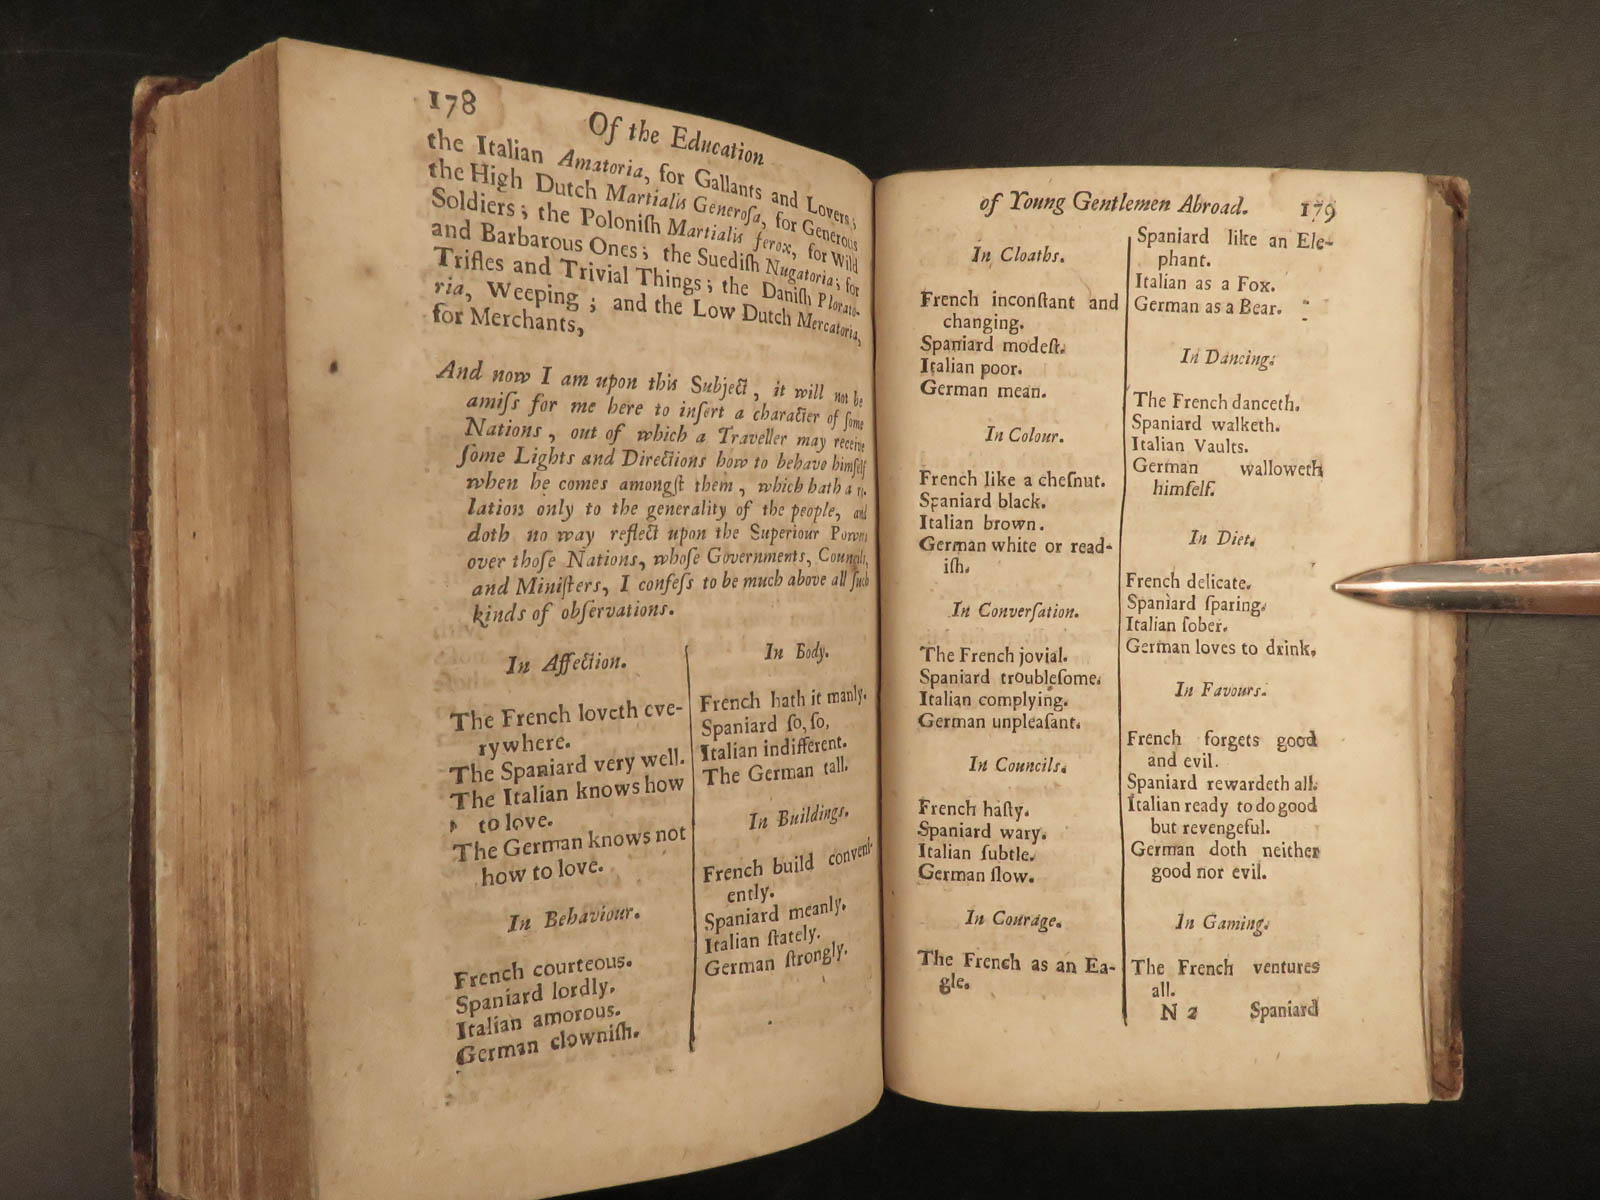 178
Of the Education
the Italian Amatoria, for Gallants and Lovers;
the High Dutch Martialis Generoſa, for Generous
Soldiers; the Poloniſh Martialis ferox, for Wild
and Barbarous Ones; the Suediſh Nugatoria; for
Trifles and Trivial Things; the Daniſh Plorato-
ria, Weeping; and the Low Dutch Mercatoria,
for Merchants,
And now I am upon this Subject, it will not be
amiſs for me here to inſert a character of ſome
Nations, out of which a Traveller may receive
ſome Lights and Directions how to behave himſelf
when he comes amongſt them, which hath a re-
lation only to the generality of the people, and
doth no way reflect upon the Superiour Powers
over thoſe Nations, whoſe Governments, Councils,
and Miniſters, I confeſs to be much above all ſuch
kinds of obſervations.
In Affection.
The French loveth eve-
rywhere.
The Spaniard very well.
The Italian knows how
to love.
The German knows not
how to love.
In Behaviour.
French courteous.
Spaniard lordly.
Italian amorous.
German clowniſh.
In Body.
French hath it manly.
Spaniard ſo, ſo,
Italian indifferent.
The German tall.
In Buildings.
French build conveni-
ently.
Spaniard meanly.
Italian ſtately.
German ſtrongly.
of Young Gentlemen Abroad. 179
In Cloaths.
French inconſtant and
changing.
Spaniard modeſt.
Italian poor.
German mean.
In Colour.
French like a cheſnut.
Spaniard black.
Italian brown.
German white or read-
iſh.
In Converſation.
The French jovial.
Spaniard troubleſome.
Italian complying.
German unpleaſant.
In Councils.
French haſty.
Spaniard wary.
Italian ſubtle.
German ſlow.
In Courage.
The French as an Ea-
gle.
Spaniard like an Ele-
phant.
Italian as a Fox.
German as a Bear.
In Dancing.
The French danceth.
Spaniard walketh.
Italian Vaults.
German walloweth
himſelf.
In Diet.
French delicate.
Spaniard ſparing.
Italian ſober.
German loves to drink,
In Favours.
French forgets good
and evil.
Spaniard rewardeth all.
Italian ready to do good
but revengeful.
German doth neither
good nor evil.
In Gaming.
The French ventures
all.
N 2 Spaniard